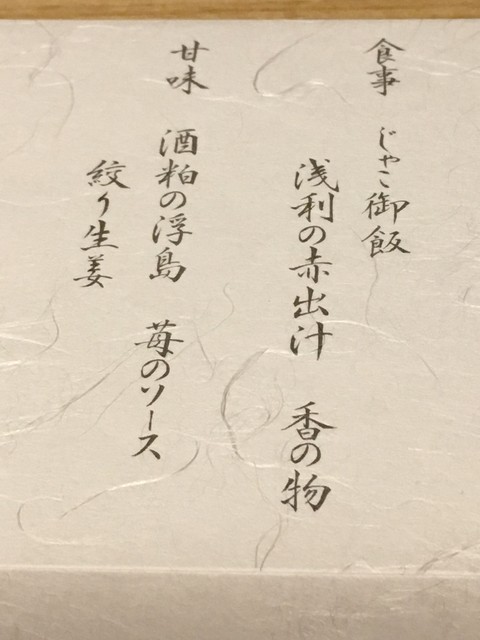 食事 じゃこ御飯
浅利の赤出汁 香の物
甘味 酒粕の浮島 苺のソース
絞り生姜